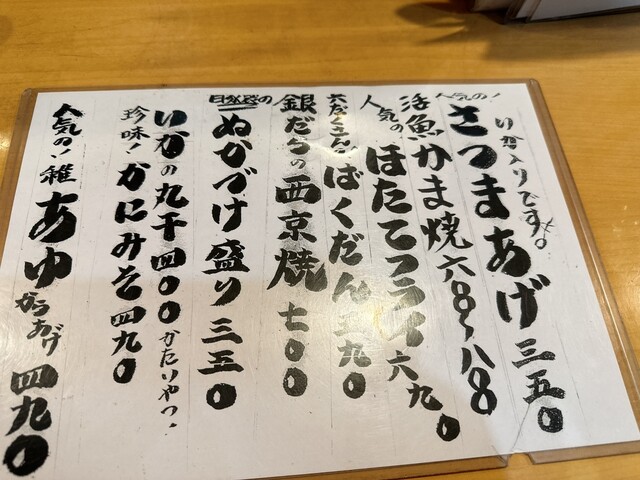 人気の!
さつまあげ 三五〇
いか入りです。
活魚かま焼 六八〜八八
人気の
ほたてフライ 六九〇
ばくだん 五九〇
銀だらの西京焼 七〇〇
自家製の
ぬかづけ盛り 三五〇
いかの丸干 四〇〇 かたいやつ!
珍味!かにみそ 四九〇
人気の!稚あゆ からあげ 四九〇